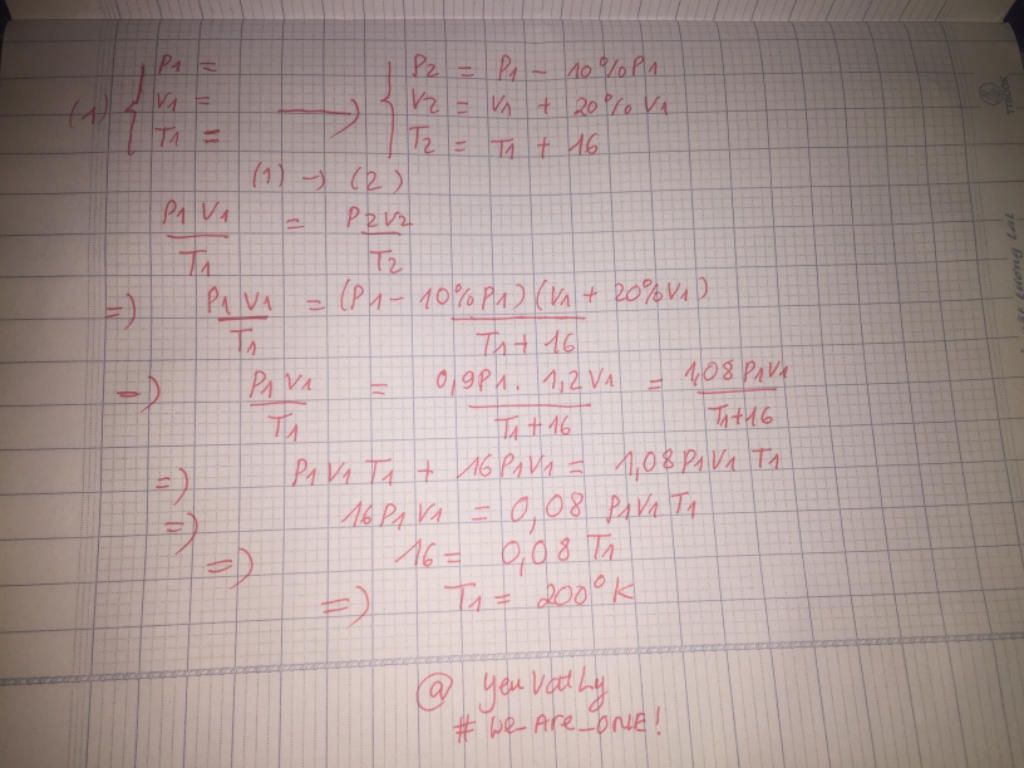 (1) { P1 = → { P2 = P1 - 10%P1
V1 = V2 = V1 + 20% V1
T1 = T2 = T1 + 16
(1) → (2)
P1 V1 / T1 = P2V2 / T2
=) P1 V1 / T1 = (P1 - 10%P1) (V1 + 20%V1) / T1 + 16
=) P1 V1 / T1 = 0,9P1. 1,2V1 / T1 + 16 = 1,08P1V1 / T1+16
=) P1 V1 T1 + 16P1V1 = 1,08P1V1 T1
=) 16P1V1 = 0,08 P1V1 T1
=) 16 = 0,08 T1
=) T1 = 200°K
@
# We_Are_ONE!